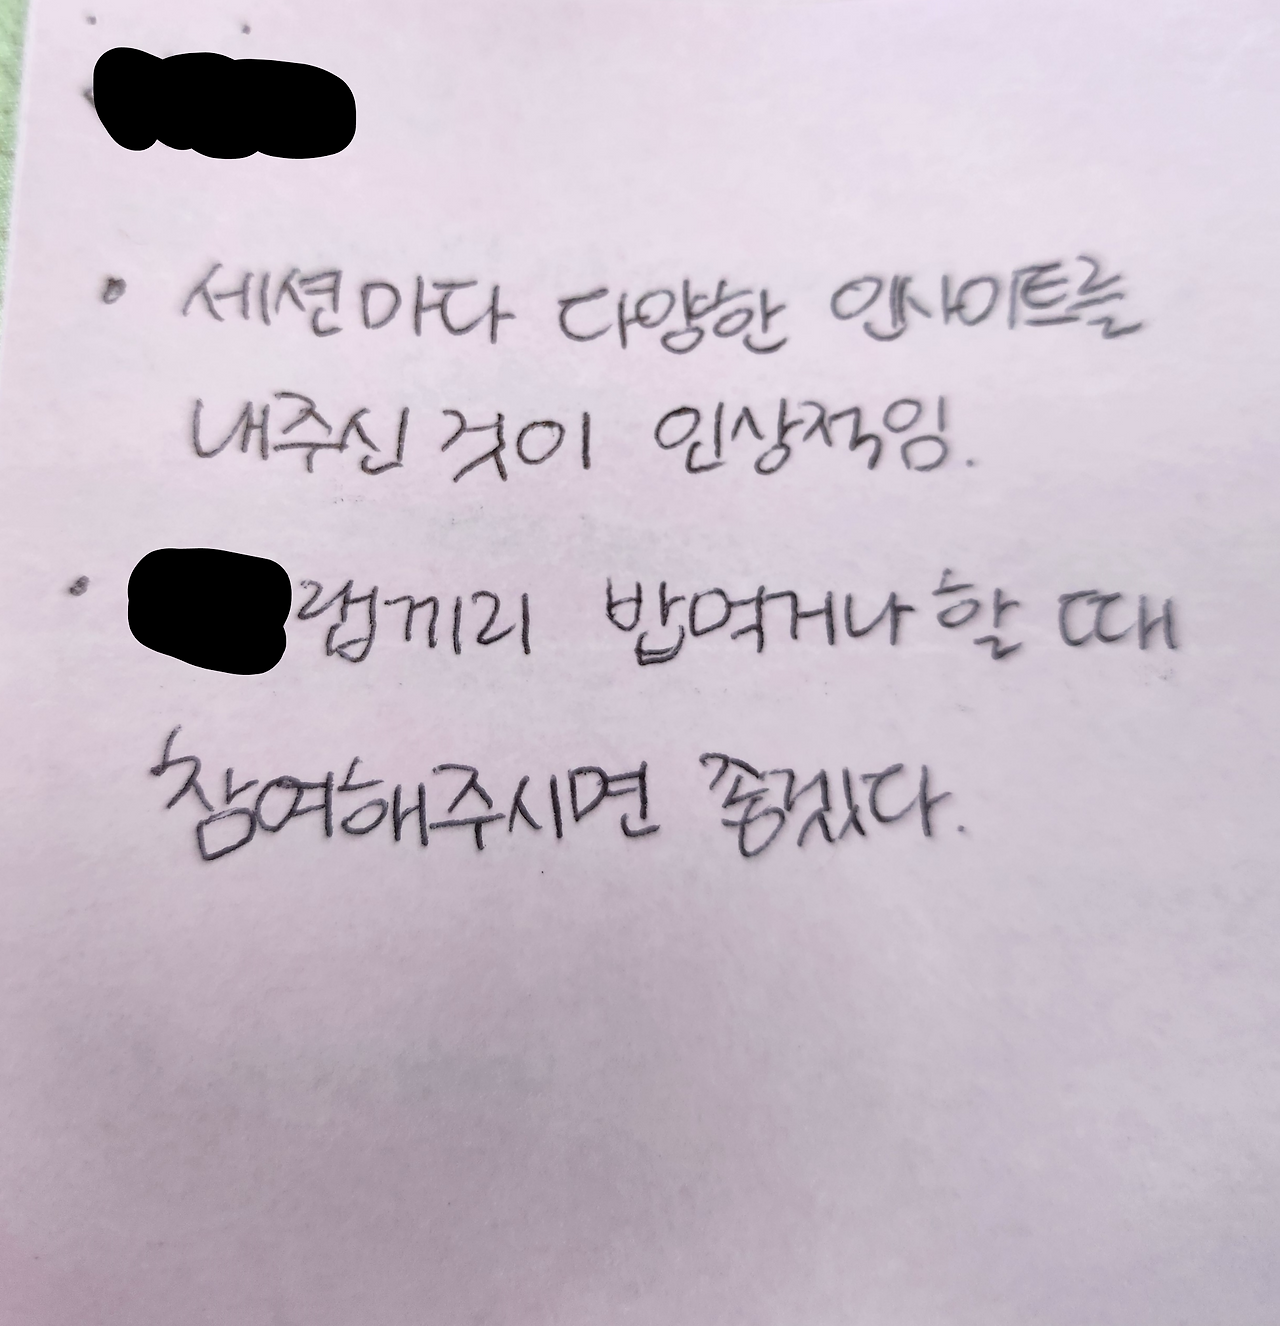 • 세션마다 다양한 인사이트를
내주신 것이 인상적임.
• 랩끼리 밥먹거나 할 때
참여해주시면 좋겠다.